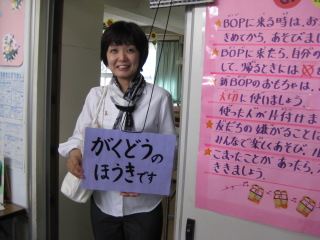 がくどうの
ほうきです
★BOPに来る時は、お
きめてから、あそびまし
★BOPに来たら、自分の
して、帰るときには
★新BOPのおもちゃは、
大切に使いましょう。
使った人が片付けま
★友だちの嫌がることは
みんなで楽しくあそび、
★こまったことがあったら、
ききましょう。